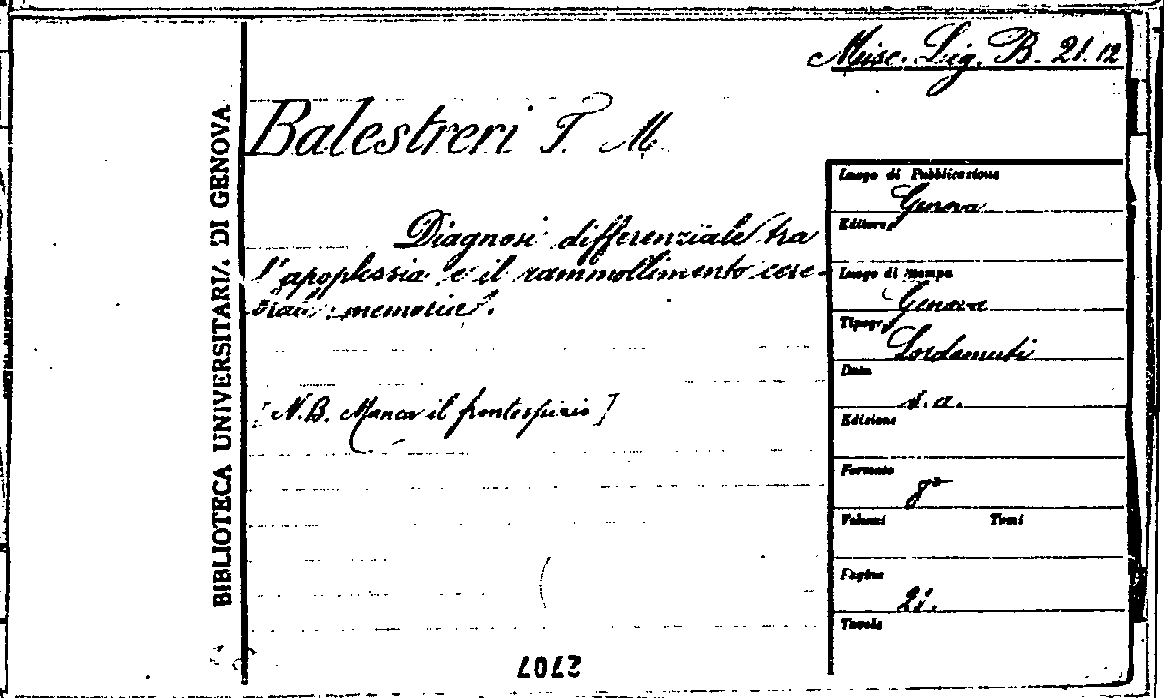 Misc. Lig. B. 21.12
BIBLIOTECA UNIVERSITARIA DI GENOVA
Balestreri T. M.
Diagnosi differenziale tra
l'apoplessia e il rammollimento cere-
brale: memoria.
[N.B. Manca il frontespizio]
Luogo di Pubblicazione
Genova
Editore
Luogo di stampa
Genova
Tipogr.
Sordomuti
Data
s.a.
Edizione
Formato
8°
Volumi Tomi
Pagine
21.
Tavole
2707